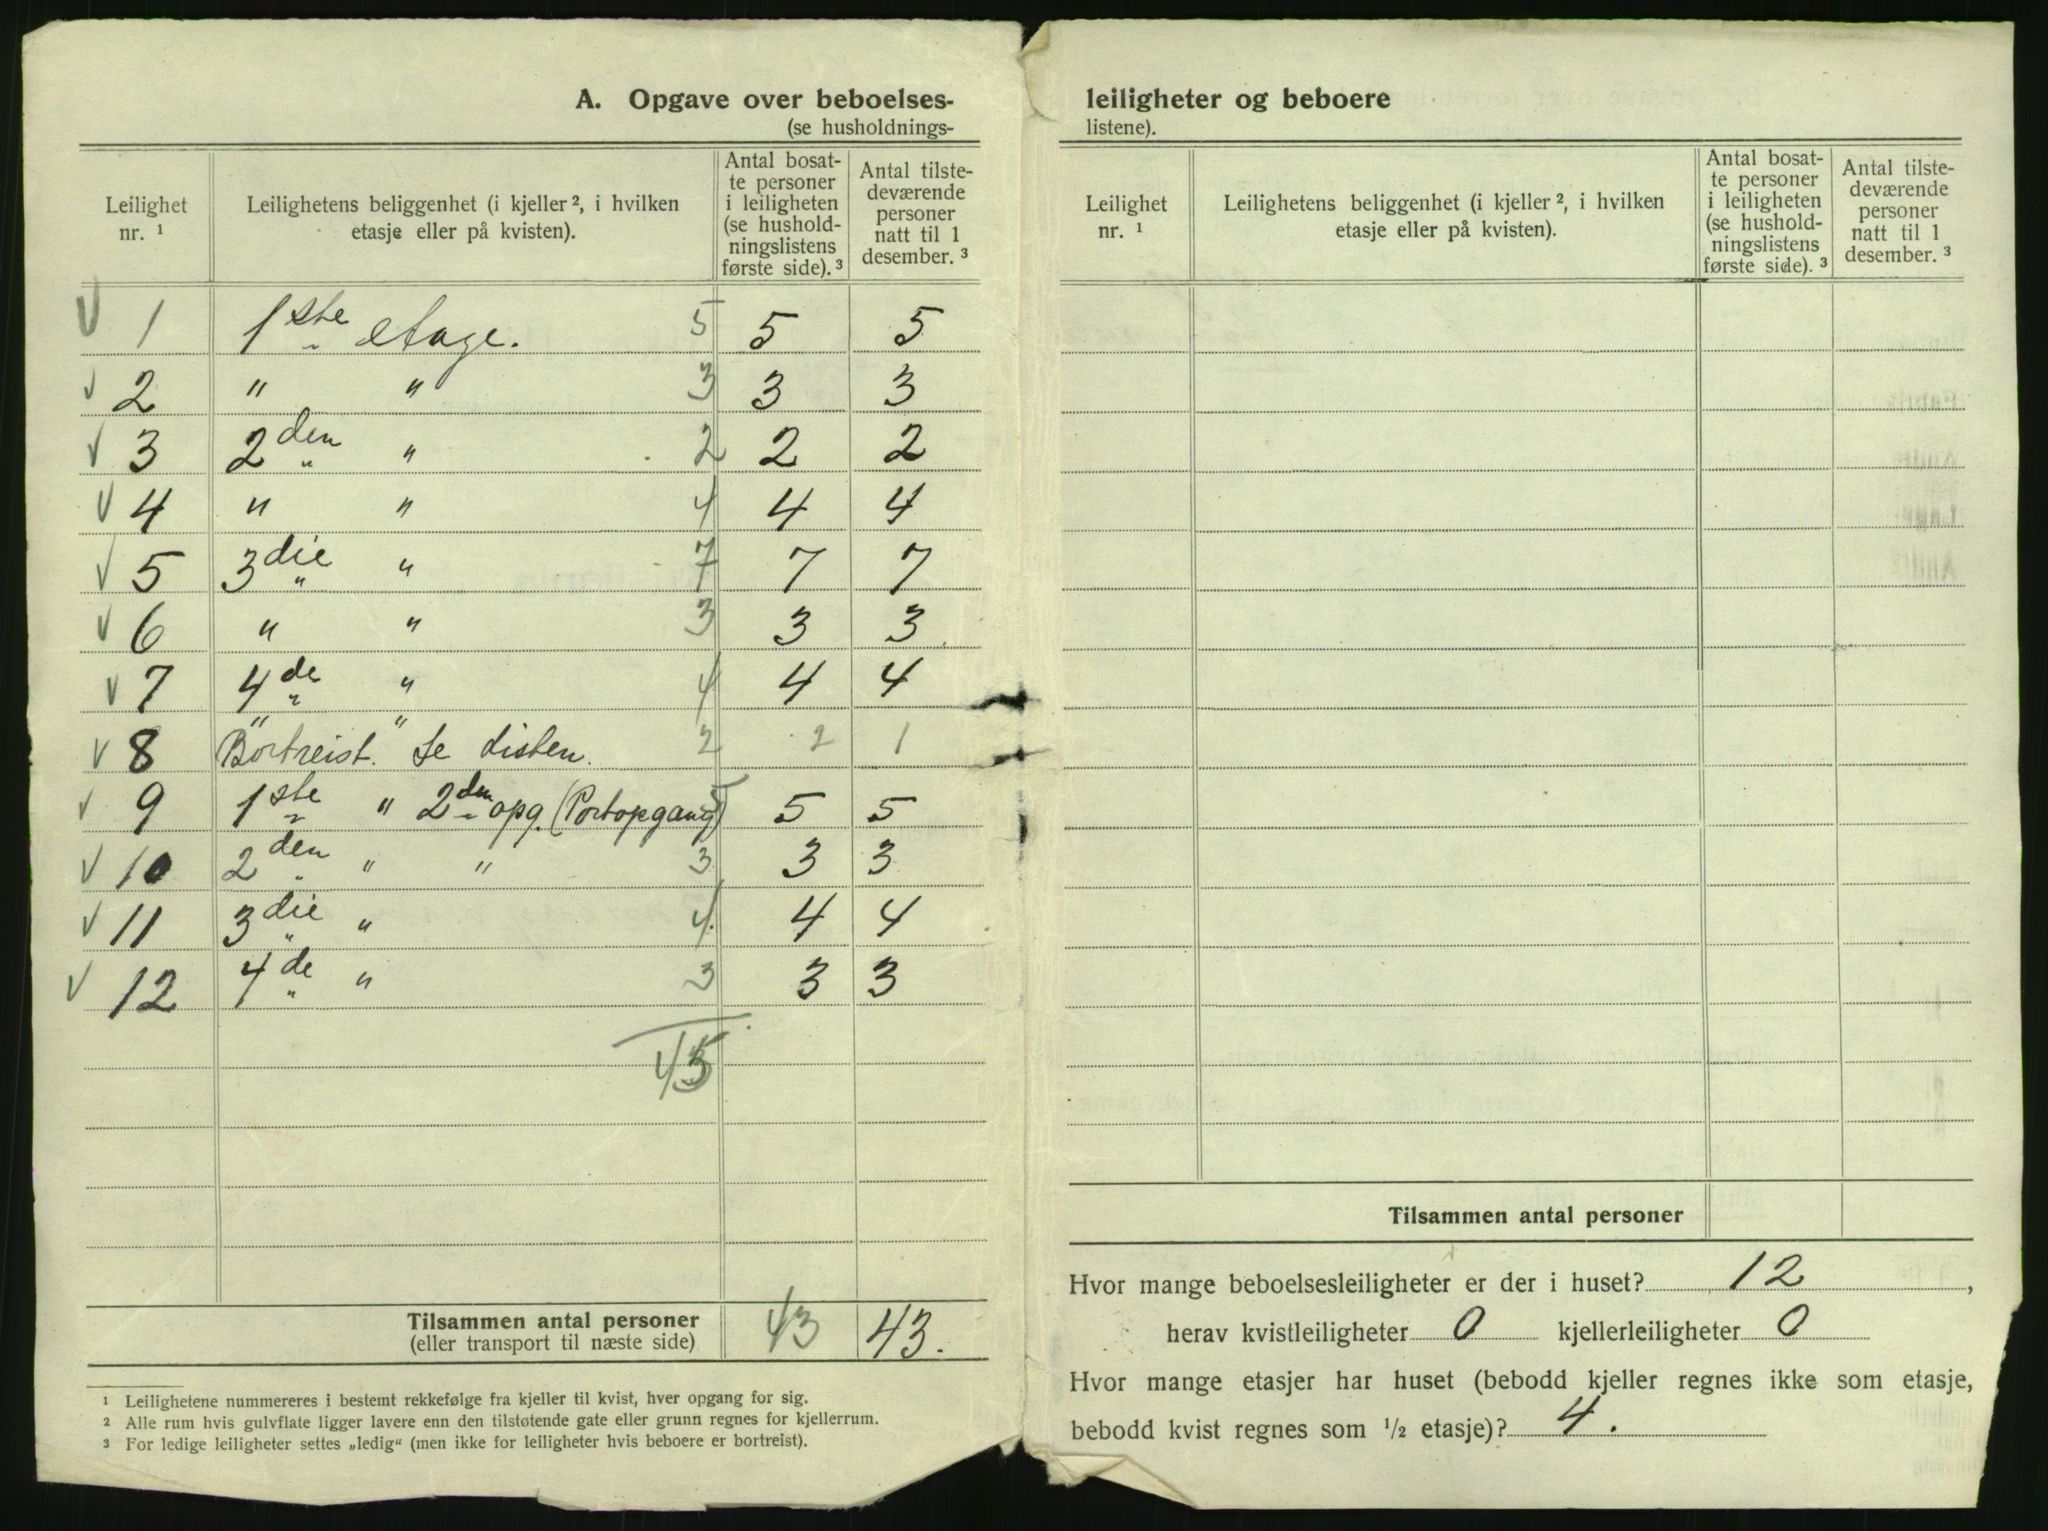 A. Opgave over beboelses-
(se husholdnings-
Leilighet nr. ¹
Leilighetens beliggenhet (i kjeller ², i hvilken etasje eller på kvisten).
Antal bosat-
te personer
i leiligheten
(se hushold-
ningslistens
første side). ³
Antal tilste-
deværende
personer
natt til 1
desember. ³
1 1ste etage. 5 5 5
2 " " 3 3 3
3 2den " 2 2 2
4 " " 4 4 4
5 3die " 7 7 7
6 " " 3 3 3
7 4de " 4 4 4
" "
8 Bortreist. Se listen. 2 2 1
9 1ste " 2den opg. (Portopgang) 5 5 5
10 2den " " 3 3 3
11 3die " 4 4 4
12 4de " 3 3 3
45
Tilsammen antal personer 43 43.
(eller transport til næste side)
¹ Leilighetene nummereres i bestemt rekkefølge fra kjeller til kvist, hver opgang for sig.
² Alle rum hvis gulvflate ligger lavere enn den tilstøtende gate eller grunn regnes for kjellerrum.
³ For ledige leiligheter settes „ledig“ (men ikke for leiligheter hvis beboere er bortreist).
leiligheter og beboere
listene).
Leilighet nr. ¹
Leilighetens beliggenhet (i kjeller ², i hvilken etasje eller på kvisten).
Antal bosat-
te personer
i leiligheten
(se hushold-
ningslistens
første side). ³
Antal tilste-
deværende
personer
natt til 1
desember. ³
Tilsammen antal personer
Hvor mange beboelsesleiligheter er der i huset? 12,
herav kvistleiligheter 0 kjellerleiligheter 0
Hvor mange etasjer har huset (bebodd kjeller regnes ikke som etasje,
bebodd kvist regnes som ½ etasje)? 4.